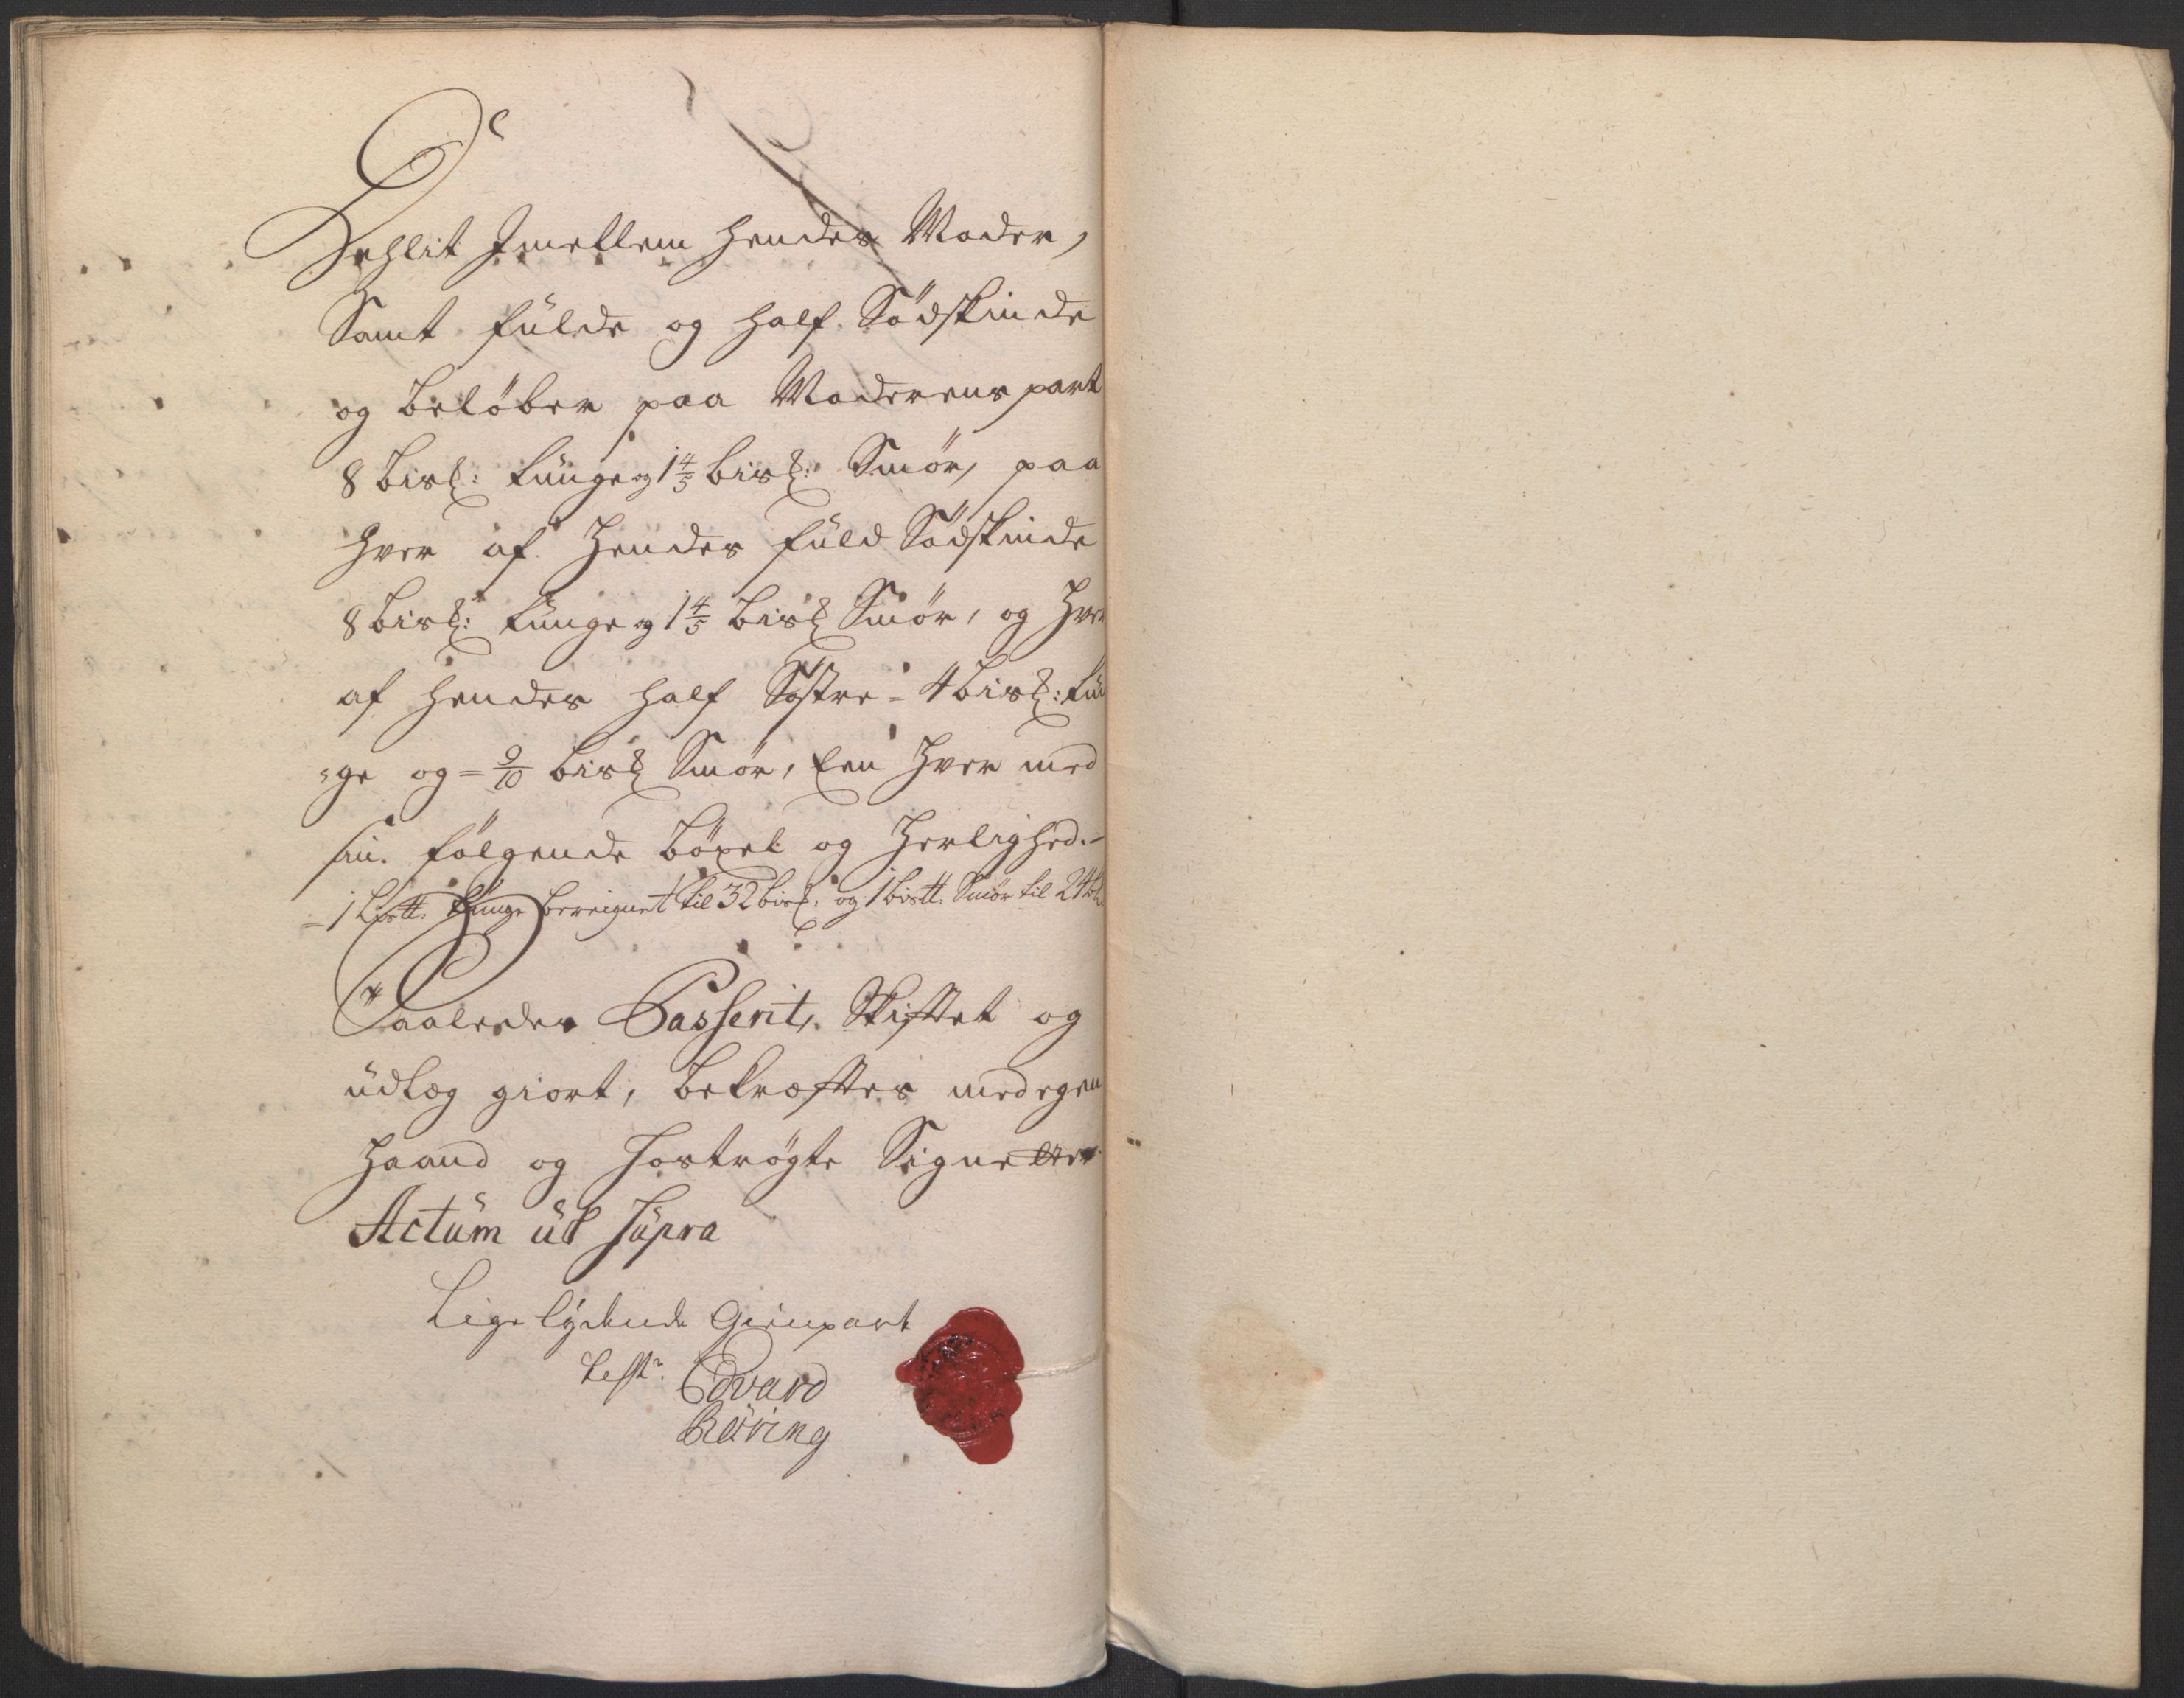 Dehlit Imellem hendes Moder,
Samt fülde og half Sødskinde
og beløber paa Moderens part
8 bisℓ: tünge og 1 4/5 bisℓ: Smör, paa
hver af Hendes füld Sødskinde
8 bisℓ: tünge og 1 4/5 bisℓ Smör, og hver
af hendes half Søstre = 4 bisℓ: tün
=ge og = 9/10 bisℓ Smör, Een hver med
sin følgende böxel og Herlighed. -
= 1 bistt: tünge bereignet til 32 bisℓ: og 1 bistt: Smör til 24
Saaledes Passerit, Skiftet og
üdlæg giort, bekræftes med egen
Haand og hostrøgte Signetter.
Actüm üt Süpra
Lige lÿdende Gienpart
test: Edvard
Röring